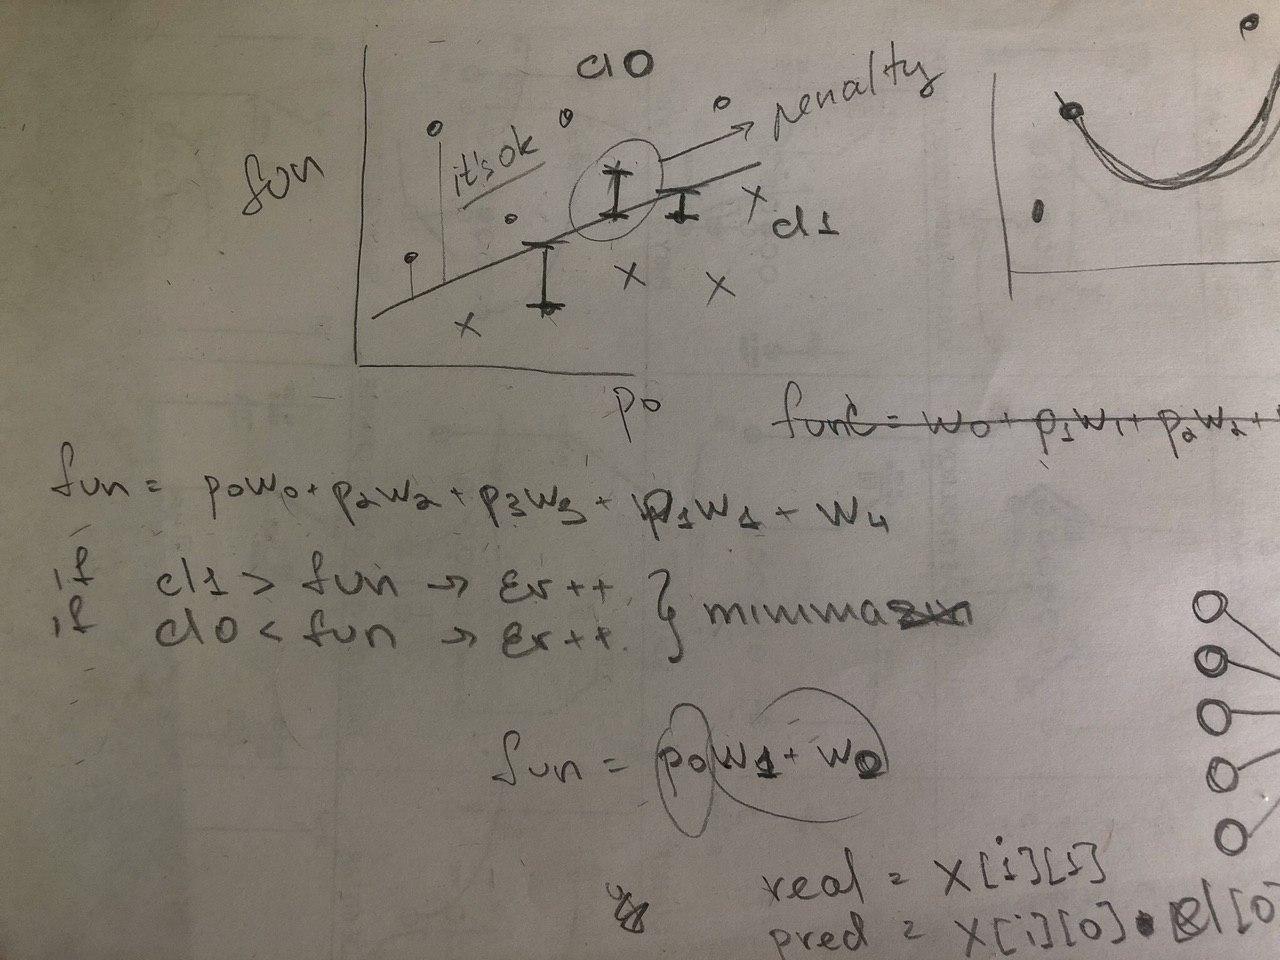 cl0
penalty
it's ok
fun
cl1
p0
func = w0 + p1w1 + p2w2 +
fun = p0w0 + p2w2 + p3w3 + p1w1 + w4
if cl1 > fun → Er++
if cl0 < fun → Er++ } minima
fun = p0w1 + w0
real = X[i][1]
pred = X[i][0] • el[0]